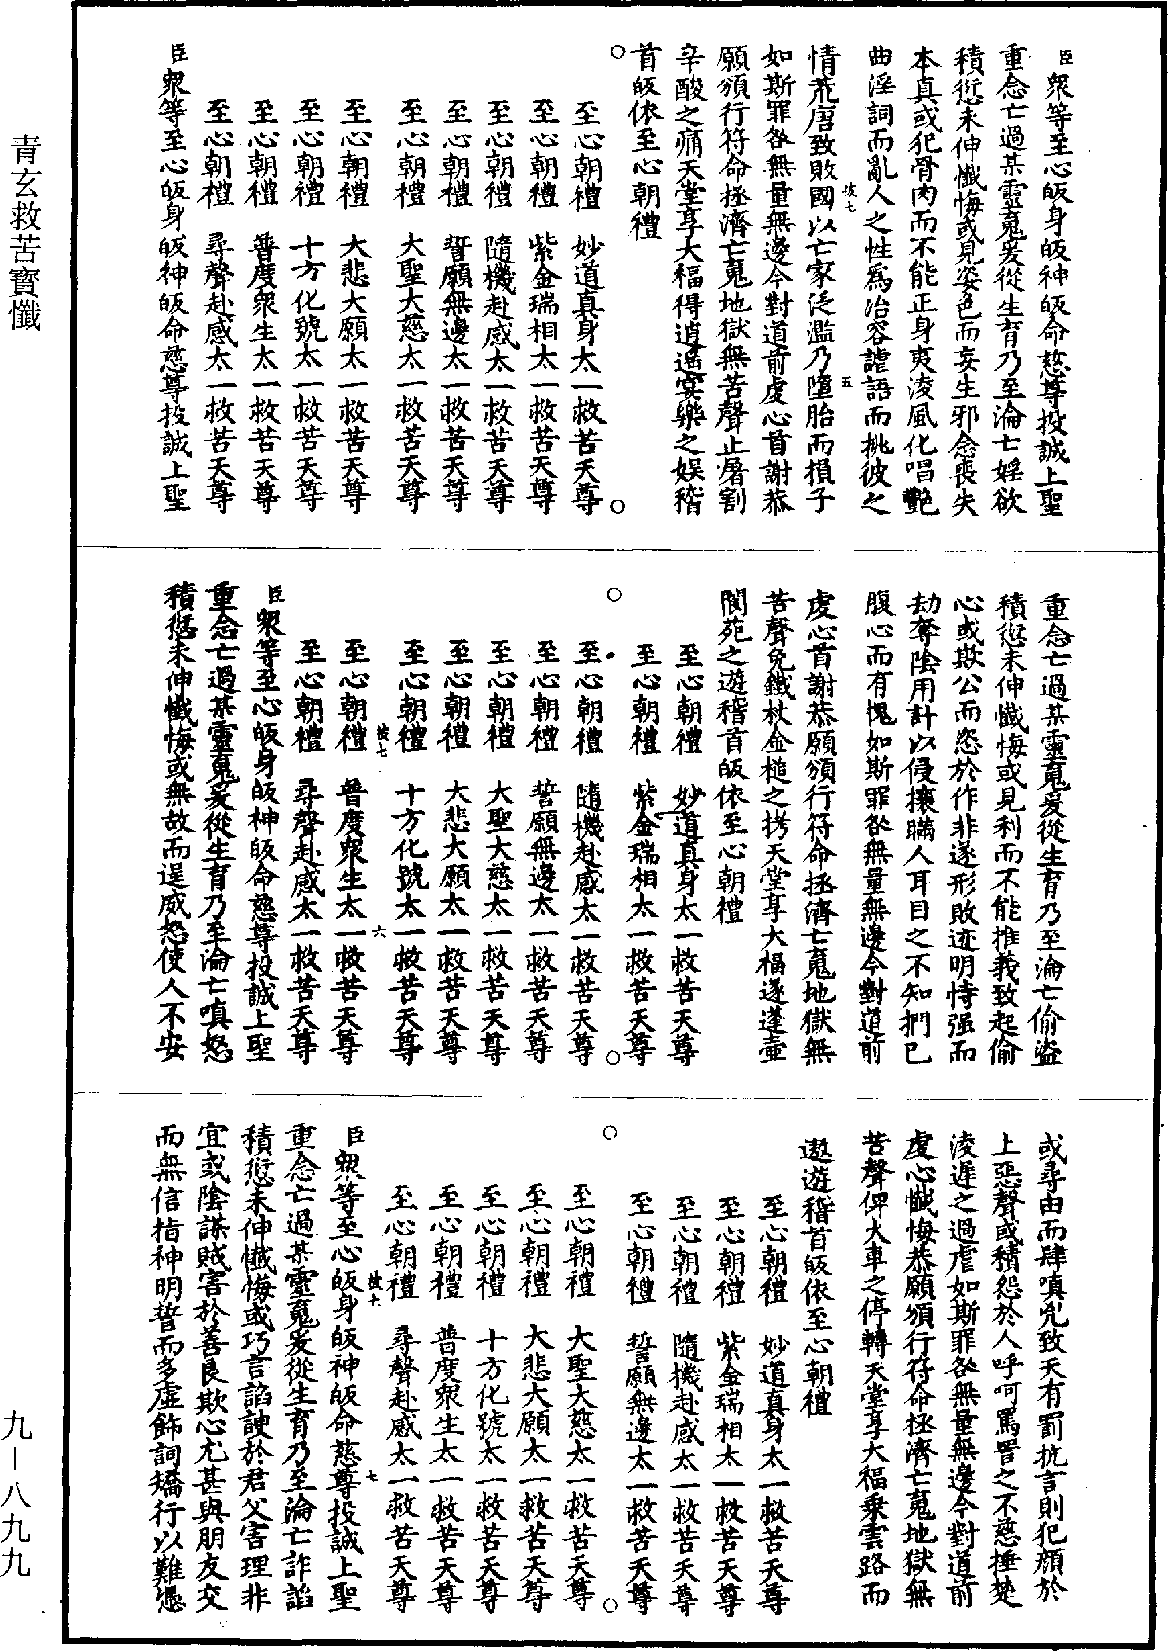 青玄救苦寶懺
臣衆等至心皈身皈神皈命慈尊投誠上聖
重念亡過某靈䰟爰從生育乃至淪亡婬欲
積愆未伸懺悔或見姿色而妄生邪念喪失
本真或犯骨肉而不能正身夷淩風化唱艷
曲淫詞而亂人之性爲冶容謔語而挑彼之
情荒唐致敗國以亡家泛濫乃墮胎而損子
如斯罪咎無量無邊今對道前虔心首謝恭
願頒行符命拯濟亡䰟地獄無苦聲止屠割
辛酸之痛天堂享大福得逍遥宴樂之娛稽
首皈依至心朝禮
至心朝禮 妙道真身太一救苦天尊
至心朝禮 紫金瑞相太一救苦天尊
至心朝禮 隨機赴感太一救苦天尊
至心朝禮 誓願無邊太一救苦天尊
至心朝禮 大聖大慈太一救苦天尊
至心朝禮 大悲大願太一救苦天尊
至心朝禮 十方化號太一救苦天尊
至心朝禮 普度衆生太一救苦天尊
至心朝禮 尋聲赴感太一救苦天尊
臣衆等至心皈身皈神皈命慈尊投誠上聖
重念亡過某靈䰟爰從生育乃至淪亡偷盜
積愆未伸懺悔或見利而不能推義致起偷
心或欺公而恣於作非遂形敗迹明恃强而
劫奪陰用計以侵攘瞞人耳目之不知捫已
腹心而有愧如斯罪咎無量無邊今對道前
虔心首謝恭願頒行符命拯濟亡䰟地獄無
苦聲免鐵杖金槌之拷天堂享大福遂蓬壺
閬苑之遊稽首皈依至心朝禮
至心朝禮 妙道真身太一救苦天尊
至心朝禮 紫金瑞相太一救苦天尊
至心朝禮 隨機赴感太一救苦天尊
至心朝禮 誓願無邊太一救苦天尊
至心朝禮 大聖大慈太一救苦天尊
至心朝禮 大悲大願太一救苦天尊
至心朝禮 十方化號太一救苦天尊
六
至心朝禮 普度衆生太一救苦天尊
至心朝禮 尋聲赴感太一救苦天尊
臣衆等至心皈身皈神皈命慈尊投誠上聖
重念亡過某靈䰟爰從生育乃至淪亡嗔怒
積愆未伸懺悔或無故而逞威怒使人不安
或尋由而肆嗔兇致天有罰抗言則犯顔於
上惡聲或積怨於人呼呵罵詈之不慈捶楚
淩遲之過虐如斯罪咎無量無邊今對道前
虔心懺悔恭願頒行符命拯濟亡䰟地獄無
苦聲俾火車之停轉天堂享大福乗雲路而
遨遊稽首皈依至心朝禮
至心朝禮 妙道真身太一救苦天尊
至心朝禮 紫金瑞相太一救苦天尊
至心朝禮 隨機赴感太一救苦天尊
至心朝禮 誓願無邊太一救苦天尊
至心朝禮 大聖大慈太一救苦天尊
至心朝禮 大悲大願太一救苦天尊
至心朝禮 十方化號太一救苦天尊
至心朝禮 普度衆生太一救苦天尊
至心朝禮 尋聲赴感太一救苦天尊
七
臣衆等至心皈身皈神皈命慈尊投誠上聖
重念亡過某靈䰟爰從生育乃至淪亡詐諂
積愆未伸懺悔或巧言諂諛於君父害理非
宜或陰謀賊害於善良欺心尤甚與朋友交
而無信指神明誓而多虛飾詞矯行以難憑
九—八九九